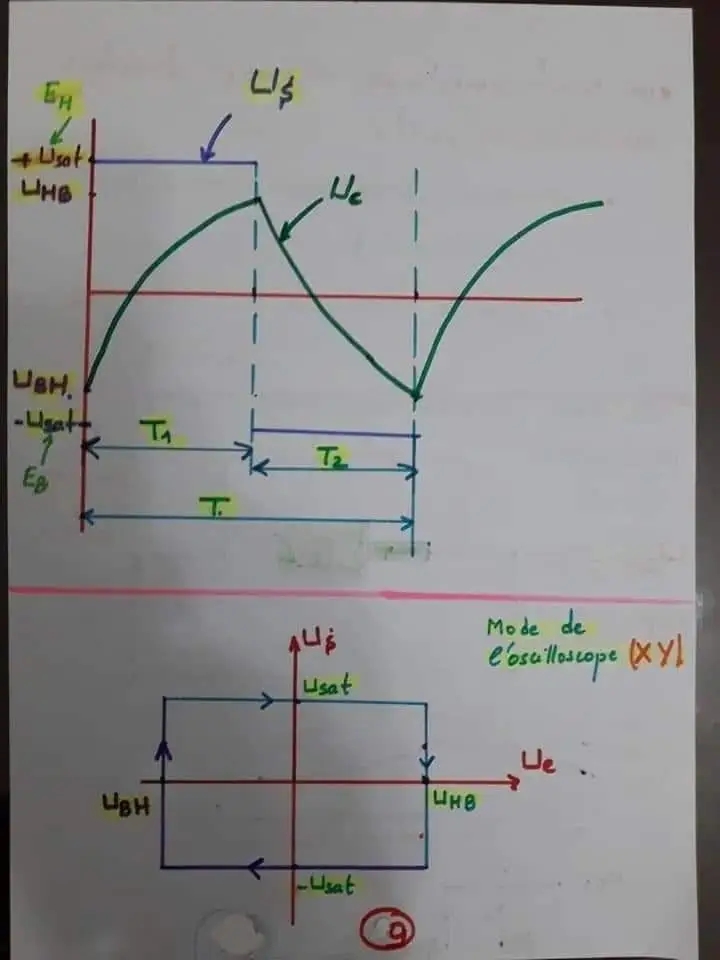 E_H
U_s
+ U_sat
U_HB
U_c
U_BH.
- U_sat
E_B
T_1
T_2
T.
Mode de
l'oscilloscope (XY)
U_s
U_sat
U_e
U_BH
U_HB
- U_sat
9